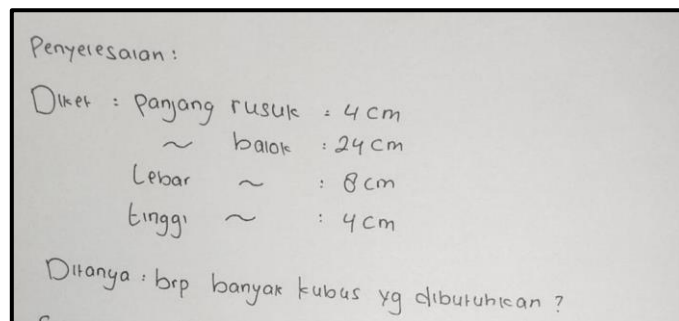 Penyelesaian :
Diket : panjang rusuk : 4 cm
~ balok : 24 cm
Lebar ~ : 8 cm
tinggi ~ : 4 cm
Ditanya : brp banyak kubus yg dibutuhkan ?